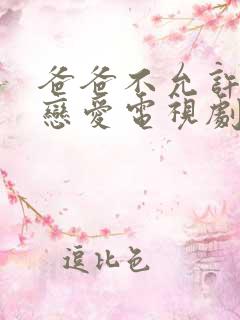 爸爸不允許
戀愛電視劇
逗比色